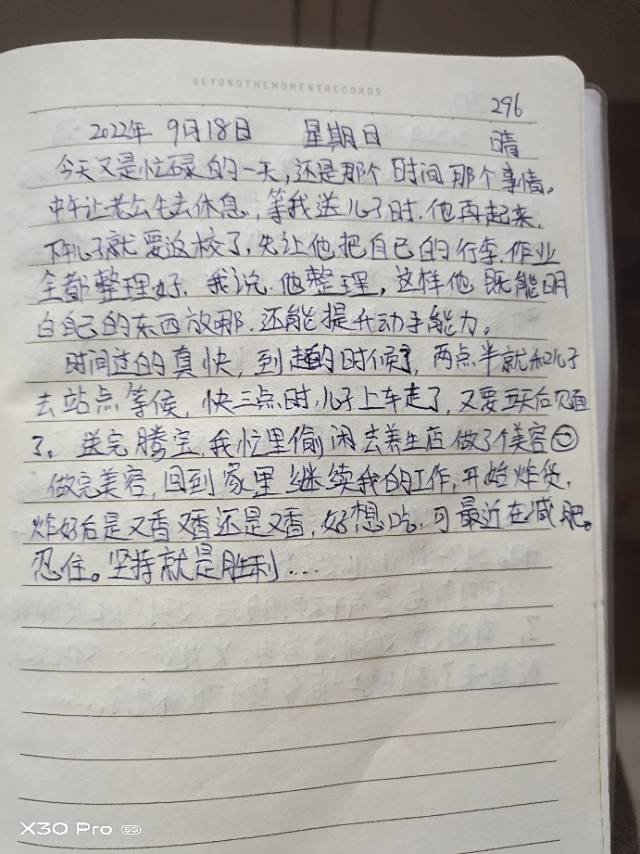 BEYONDTHEMOMENTRECORDS
296
2022年 9月18日 星期日 晴
今天又是忙碌的一天,还是那个时间那个事情。
中午让老公先去休息,等我送儿子时,他再起来,
下午儿子就要返校了,先让他把自己的行李,作业
全都整理好,我说,他整理,这样他既能明
白自己的东西放那,还能提升动手能力。
时间过的真快,到走的时候了,两点半就和儿子
去站点等侯,快三点时,儿子上车走了,又要五天后见面
了。送完腾宝,我忙里偷闲去养生店做了个美容
做完美容,回到家里继续我的工作,开始炸货,
炸好后是又香又香还是又香,好想吃,可最近在减肥。
忍住。坚持就是胜利...
X30 Pro 5G